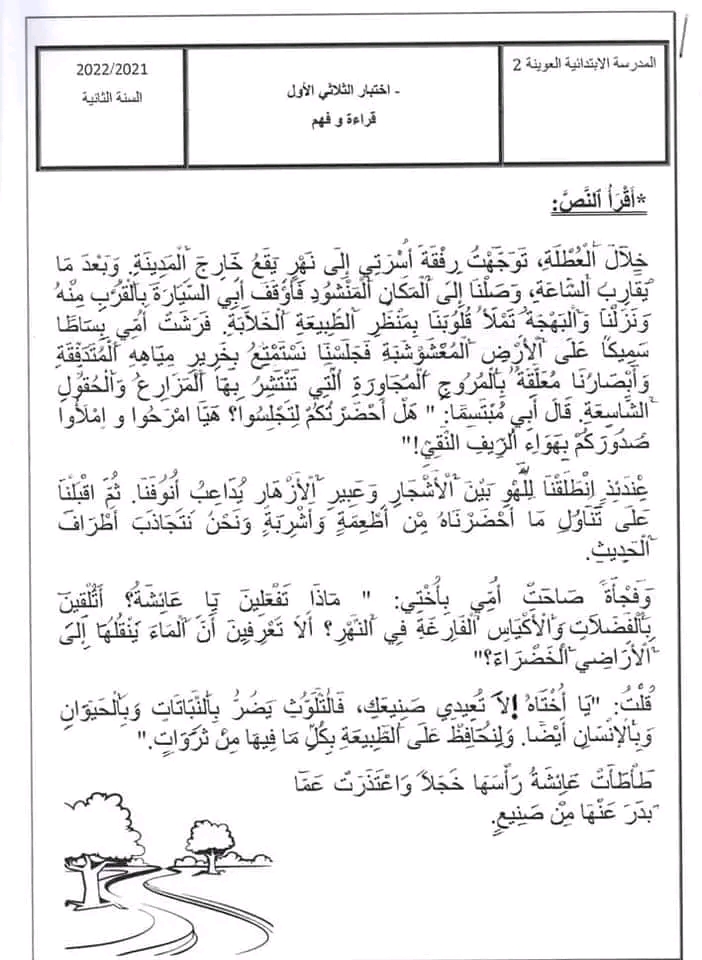 المدرسة الابتدائية العوينة 2
- اختبار الثلاثي الأول
قراءة و فهم
2022/2021
السنة الثانية
*أَقْرَأُ النَّصَّ:
خِلَالَ الْعُطْلَةِ، تَوَجَّهْتُ رِفْقَةَ أُسْرَتِي إِلَى نَهْرٍ يَقَعُ خَارِجَ الْمَدِينَةِ. وَبَعْدَ مَا
يُقَارِبُ السَّاعَةِ، وَصَلْنَا إِلَى الْمَكَانِ الْمَنْشُودِ فَأَوْقَفَ أَبِي السَّيَّارَةَ بِالْقُرْبِ مِنْهُ
وَنَزَلْنَا وَالْبَهْجَةُ تَمْلَأُ قُلُوبَنَا بِمَنْظَرِ الطَّبِيعَةِ الْخَلَّابَةِ. فَرَشَتْ أُمِّي بِسَاطًا
سَمِيكًا عَلَى الْأَرْضِ الْمُعْشَوْشِبَةِ فَجَلَسْنَا نَسْتَمْتِعُ بِخَرِيرِ مِيَاهِهِ الْمُتَدَفِّقَةِ
وَأَبْصَارُنَا مُعَلَّقَةٌ بِالْمُرُوجِ الْمُجَاوِرَةِ الَّتِي تَنْتَشِرُ بِهَا الْمَزَارِعُ وَالْحُقُولُ
الشَّاسِعَةِ. قَالَ أَبِي مُبْتَسِمًا: " هَلْ أَحْضَرْتُكُمْ لِتَجْلِسُوا؟ هَيَّا امْرَحُوا و اِمْلَأُوا
صُدُورَكُمْ بِهَوَاءِ الرِّيفِ النَّقِيِّ!"
عِنْدَئِذٍ اِنْطَلَقْنَا لِلَّهْوِ بَيْنَ الْأَشْجَارِ وَعَبِيرِ الْأَزْهَارِ يُدَاعِبُ أُنُوفَنَا. ثُمَّ اقْبَلْنَا
عَلَى تَنَاوُلِ مَا أَحْضَرْنَاهُ مِنْ أَطْعِمَةٍ وَأَشْرِبَةٍ وَنَحْنُ نَتَجَاذَبَ أَطْرَافَ
الْحَدِيثِ.
وَفَجْأَةً صَاحَتْ أُمِّي بِأُخْتِي: " مَاذَا تَفْعَلِينَ يَا عَائِشَةُ؟ أَتُلْقِينَ
بِالْفَضَلَاتِ وَالْأَكْيَاسِ الْفَارِغَةِ فِي النَّهْرِ؟ أَلَا تَعْرِفِينَ أَنَّ الْمَاءَ يَنْقُلُهَا إِلَى
الْأَرَاضِي الْخَضْرَاءَ؟"
قُلْتُ: "يَا أُخْتَاهُ !لَا تُعِيدِي صَنِيعَكِ، فَالتَّلَوُّثُ يَضُرُّ بِالنَّبَاتَاتِ وَبِالْحَيَوَانِ
وَبِالْإِنْسَانِ أَيْضًا. وَلِنُحَافِظْ عَلَى الطَّبِيعَةِ بِكُلِّ مَا فِيهَا مِنْ ثَرَوَاتٍ."
طَأْطَأَتْ عَائِشَةُ رَأْسَهَا خَجَلًا وَاعْتَذَرَتْ عَمَّا
بَدَرَ عَنْهَا مِنْ صَنِيعٍ.